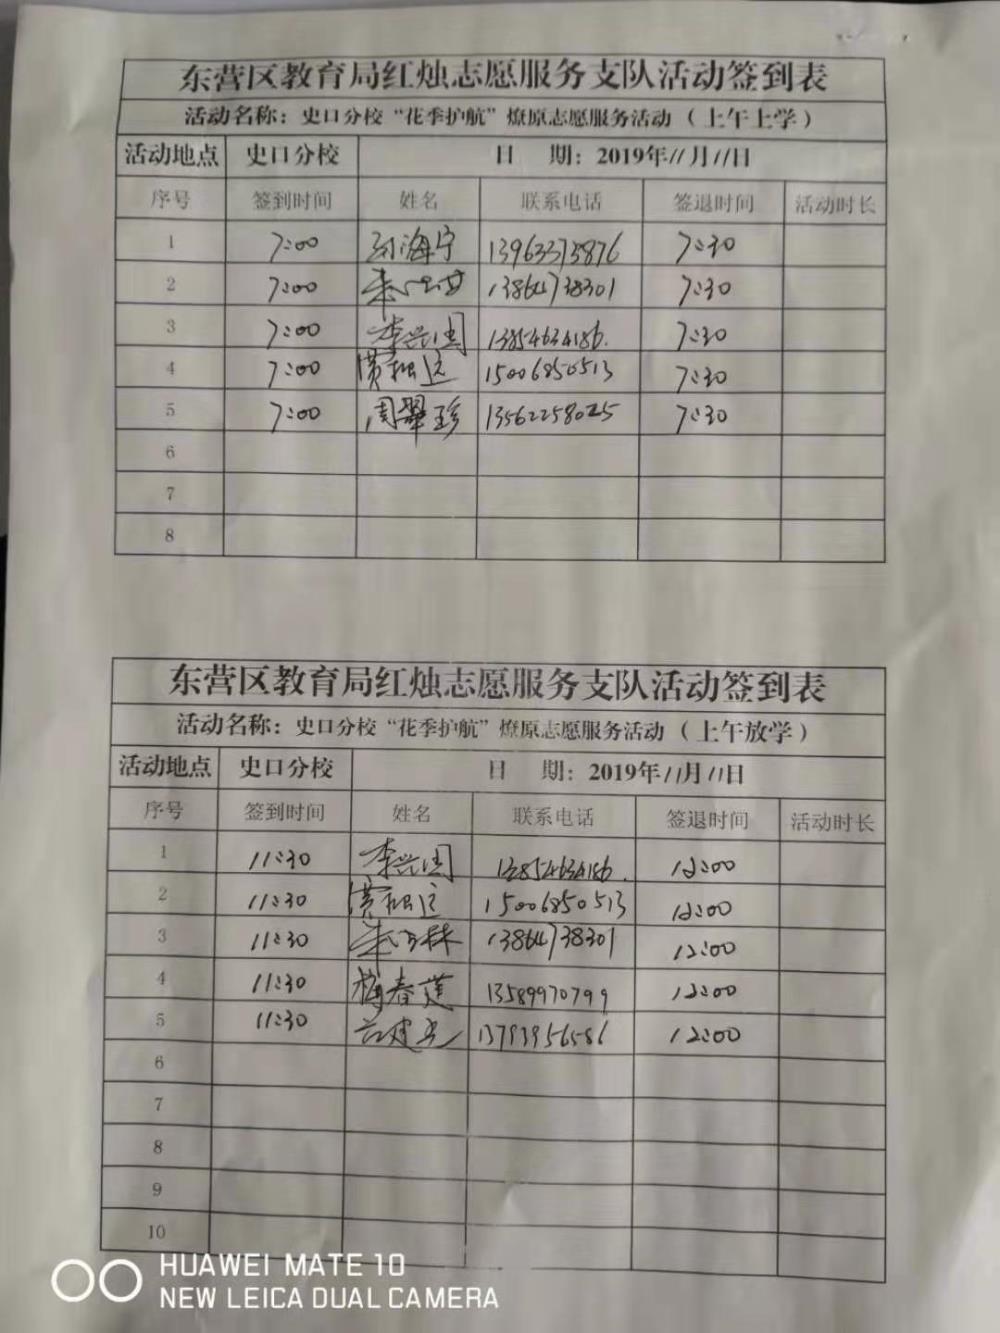 东营区教育局红烛志愿服务支队活动签到表
活动名称：史口分校“花季护航”燎原志愿服务活动（上午上学）
活动地点 史口分校 日 期：2019年11月11日
序号 签到时间 姓名 联系电话 签退时间 活动时长
1 7:00 海宁 13963375876 7:30
2 7:00 13864738301 7:30
3 7:00 李兴国 13854634186. 7:30
4 7:00 15006850513 7:30
5 7:00 周翠珍 13562258025 7:30
6
7
8
东营区教育局红烛志愿服务支队活动签到表
活动名称：史口分校“花季护航”燎原志愿服务活动（上午放学）
活动地点 史口分校 日 期：2019年11月11日
序号 签到时间 姓名 联系电话 签退时间 活动时长
1 11:30 李兴国 13854634186. 12:00
2 11:30 15006850513 12:00
3 11:30 13864738301 12:00
4 11:30 梅春莲 13589970799 12:00
5 11:30 13793956586 12:00
6
7
8
9
10
HUAWEI MATE 10
NEW LEICA DUAL CAMERA